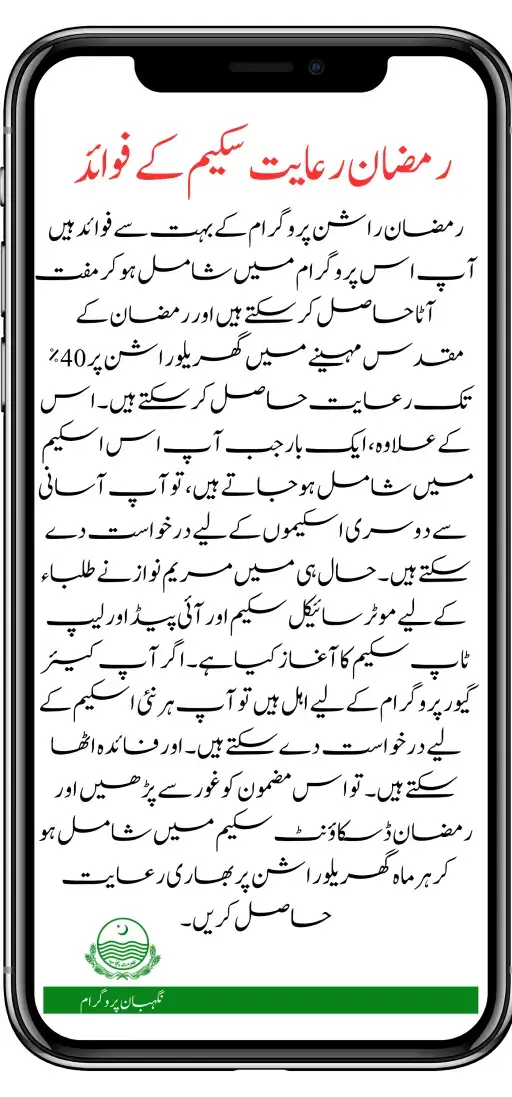 رمضان رعایت سکیم کے فوائد
رمضان راشن پروگرام کے بہت سے فوائد ہیں
آپ اس پروگرام میں شامل ہو کر مفت
آٹا حاصل کر سکتے ہیں اور رمضان کے
مقدس مہینے میں گھریلو راشن پر 40%
تک رعایت حاصل کر سکتے ہیں۔ اس
کے علاوہ، ایک بار جب آپ اس اسکیم
میں شامل ہو جاتے ہیں، تو آپ آسانی
سے دوسری اسکیموں کے لیے درخواست دے
سکتے ہیں۔ حال ہی میں مریم نواز نے طلباء
کے لیے موٹر سائیکل سکیم اور آئی پیڈ اور لیپ
ٹاپ سکیم کا آغاز کیا ہے۔ اگر آپ کیئر
گیور پروگرام کے لیے اہل ہیں تو آپ ہر نئی اسکیم کے
لیے درخواست دے سکتے ہیں۔ اور فائدہ اٹھا
سکتے ہیں۔ تو اس مضمون کو غور سے پڑھیں اور
رمضان ڈسکاؤنٹ سکیم میں شامل ہو
کر ہر ماہ گھریلو راشن پر بھاری رعایت
حاصل کریں۔
نگہبان پروگرام